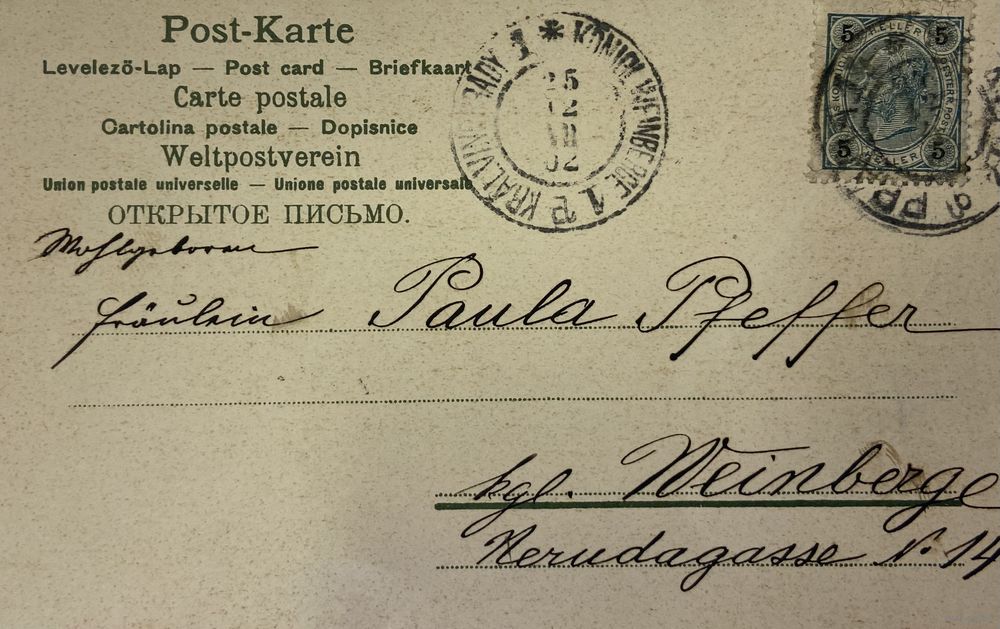 Post-Karte
Levelező-Lap — Post card — Briefkaart
Carte postale
Cartolina postale — Dopisnice
Weltpostverein
Union postale universelle — Unione postale universale
ОТКРЫТОЕ ПИСЬМО.
KÖNIGL. WEINBERGE 1
KRÁL. VINOHRADY 1
25
12
VII
02
5 HELLER 5
5 HELLER 5
Wohlgeboren
Fräulein Paula Pfeffer
kgl. Weinberge
Nerudagasse N. 14